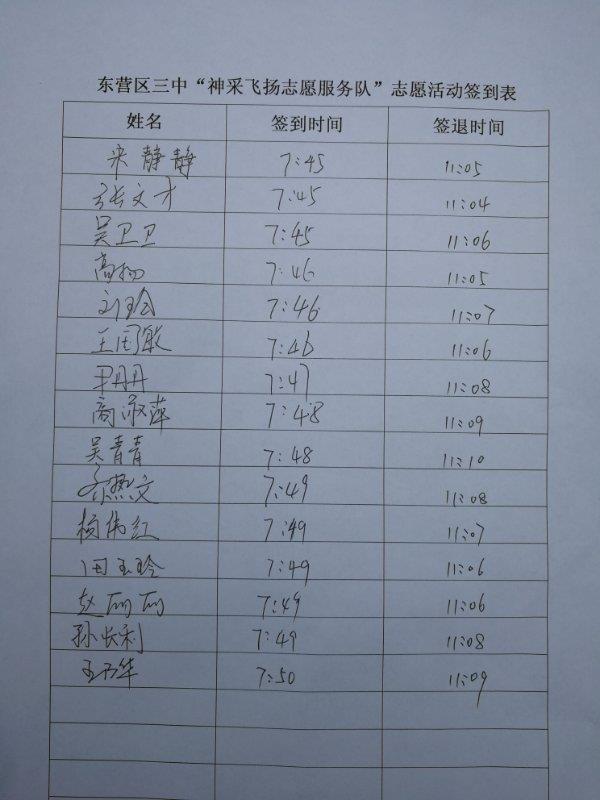 东营区三中“神采飞扬志愿服务队”志愿活动签到表
姓名 签到时间 签退时间
宋静静 7:45 11:05
张文才 7:45 11:04
吴卫卫 7:45 11:06
高杨 7:46 11:05
刘玲 7:46 11:07
王国敏 7:46 11:06
丹丹 7:47 11:08
高淑萍 7:48 11:09
吴青青 7:48 11:10
文 7:49 11:08
杨伟红 7:49 11:07
田玉玲 7:49 11:06
赵丽丽 7:49 11:06
孙长利 7:49 11:08
王华 7:50 11:09